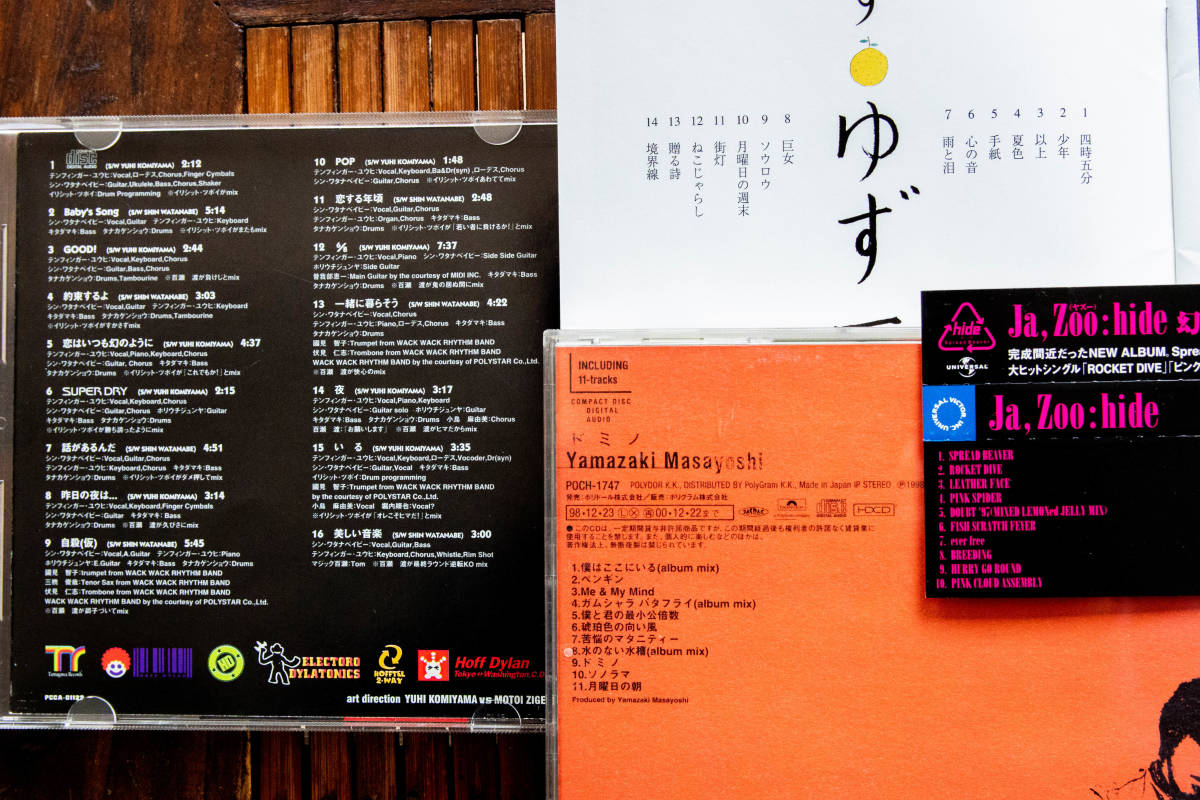 disc
DIGITAL AUDIO
1 (S/W YUHI KOMIYAMA) 2:12
テンフィンガー・ユウヒ:Vocal,ローデス,Chorus,Finger Cymbals
シン・ワタナベイビー:Guitar,Ukulele,Bass,Chorus,Shaker
イリシット・ツボイ:Drum Programming ※イリシット・ツボイがmix
2 Baby's Song (S/W SHIN WATANABE) 5:14
シン・ワタナベイビー:Vocal,Guitar テンフィンガー・ユウヒ:Keyboard
キタダマキ:Bass タナカゲンショウ:Drums ※イリシット・ツボイがまたもmix
3 GOOD! (S/W YUHI KOMIYAMA) 2:44
テンフィンガー・ユウヒ:Vocal,Keyboard,Chorus
シン・ワタナベイビー:Guitar,Bass,Chorus
タナカゲンショウ:Drums,Tambourine ※百瀬 渡が負けじとmix
4 約束するよ (S/W SHIN WATANABE) 3:03
シン・ワタナベイビー:Vocal,Guitar テンフィンガー・ユウヒ:Keyboard
キタダマキ:Bass タナカゲンショウ:Drums,Tambourine
※イリシット・ツボイがすかさずmix
5 恋はいつも幻のように (S/W YUHI KOMIYAMA) 4:37
テンフィンガー・ユウヒ:Vocal,Piano,Keyboard,Chorus
シン・ワタナベイビー:Guitar,Chorus キタダマキ:Bass
タナカゲンショウ:Drums ※イリシット・ツボイが「これでもか!」とmix
6 SUPER DRY (S/W YUHI KOMIYAMA) 2:15
テンフィンガー・ユウヒ:Vocal,Keyboard,Chorus
シン・ワタナベイビー:Guitar,Chorus ホリウチジュンヤ:Guitar
キタダマキ:Bass タナカゲンショウ:Drums
※イリシット・ツボイが勝ち誇ったようにmix
7 話があるんだ (S/W SHIN WATANABE) 4:51
シン・ワタナベイビー:Vocal,Guitar,Chorus
テンフィンガー・ユウヒ:Keyboard,Chorus キタダマキ:Bass
タナカゲンショウ:Drums ※イリシット・ツボイがダメ押してmix
8 昨日の夜は... (S/W YUHI KOMIYAMA) 3:14
テンフィンガー・ユウヒ:Vocal,Keyboard,Finger Cymbals
シン・ワタナベイビー:Guitar キタダマキ:Bass
タナカゲンショウ:Drums ※百瀬 渡が久びさにmix
9 自殺(仮) (S/W SHIN WATANABE) 5:45
シン・ワタナベイビー:Vocal,A.Guitar テンフィンガー・ユウヒ:Piano
ホリウチジュンヤ:E.Guitar キタダマキ:Bass タナカゲンショウ:Drums
國見 智子:trumpet from WACK WACK RHYTHM BAND
三橋 俊哉:Tenor Sax from WACK WACK RHYTHM BAND
伏見 仁志:Trombone from WACK WACK RHYTHM BAND
WACK WACK RHYTHM BAND by the courtesy of POLYSTAR Co.,Ltd.
※百瀬 渡が調子づいてmix
10 POP (S/W YUHI KOMIYAMA) 1:48
テンフィンガー・ユウヒ:Vocal,Keyboard,Ba&Dr(syn),ローデス,Chorus
シン・ワタナベイビー:Guitar,Chorus ※イリシット・ツボイあわててmix
11 恋する年頃 (S/W SHIN WATANABE) 2:48
シン・ワタナベイビー:Vocal,Guitar,Chorus
テンフィンガー・ユウヒ:Organ,Chorus キタダマキ:Bass
タナカゲンショウ:Drums ※イリシット・ツボイが「若い者に負けるか!」とmix
12 (S/W YUHI KOMIYAMA) 7:37
テンフィンガー・ユウヒ:Vocal,Piano シン・ワタナベイビー:Side Side Guitar
ホリウチジュンヤ:Side Guitar
曽我部恵一:Main Guitar by the courtesy of MIDI INC. キタダマキ:Bass
タナカゲンショウ:Drums ※百瀬 渡が鬼の居ぬ間にmix
13 一緒に暮らそう (S/W SHIN WATANABE) 4:22
シン・ワタナベイビー:Vocal,Guitar,Chorus
テンフィンガー・ユウヒ:Piano,ローデス,Chorus キタダマキ:Bass
タナカゲンショウ:Drums
國見 智子:Trumpet from WACK WACK RHYTHM BAND
伏見 仁志:Trombone from WACK WACK RHYTHM BAND
WACK WACK RHYTHM BAND by the courtesy of POLYSTAR Co.,Ltd.
※百瀬 渡が快心のmix
14 夜 (S/W YUHI KOMIYAMA) 3:17
テンフィンガー・ユウヒ:Vocal,Piano,Keyboard
シン・ワタナベイビー:Guitar solo ホリウチジュンヤ:Guitar
キタダマキ:Bass タナカゲンショウ:Drums 小島 麻由美:Chorus
百瀬 渡:「お願いします」 ※百瀬 渡がヒマだからmix
15 いる (S/W SHIN WATANABE) 3:35
テンフィンガー・ユウヒ:Keyboard,ローデス,Vocoder,Dr(syn)
シン・ワタナベイビー:Guitar,Vocal キタダマキ:Bass
イリシット・ツボイ:Drum programming
國見 智子:Trumpet from WACK WACK RHYTHM BAND
by the courtesy of POLYSTAR Co.,Ltd.
小島 麻由美:Vocal 堀内晴也:Vocal?
※イリシット・ツボイが「オレこそキマだ!」とmix
16 美しい音楽 (S/W YUHI KOMIYAMA) 3:00
シン・ワタナベイビー:Vocal,Guitar,Bass
テンフィンガー・ユウヒ:Keyboard,Chorus,Whistle,Rim Shot
マジック百瀬:Tom ※百瀬 渡が最終ラウンド逆転KO mix
Tamagawa Records
MD
ELECTORO
DYLATONICS
HOFFTEL
2-WAY
Hoff Dylan
Tokyo Washington,C.D
PCCA-01122
art direction YUHI KOMIYAMA vs MOTOI ZIGE
す
ゆず
1 四時五分
2 少年
3 以上
4 夏色
5 手紙
6 心の音
7 雨と泪
8 巨女
9 ソウロウ
10 月曜日の週末
11 街灯
12 ねこじゃらし
13 贈る詩
14 境界線
INCLUDING
11-tracks
COMPACT DISC
DIGITAL
AUDIO
ドミノ
Yamazaki Masayoshi
POCH-1747 POLYDOR K.K., DISTRIBUTED BY PolyGram K.K., Made in Japan IP STEREO Ⓟ1998
発売:ポリドール株式会社/販売:ポリグラム株式会社
98・12・23 Ⓛ Ⓧ 再 00・12・22まで
HDCD
●このCDは、一定期間貸与非許諾商品ですが、この期間経過後も権利者の許諾なく賃貸業に
使用することを禁じます。また、個人的に楽しむなどのほかは、
著作権法上、無断複製は禁じられています。
1.僕はここにいる(album mix)
2.ペンギン
3.Me & My Mind
4.ガムシャラ バタフライ(album mix)
5.僕と君の最小公倍数
6.琥珀色の向い風
7.苦悩のマタニティー
8.水のない水槽(album mix)
9.ドミノ
10.ソノラマ
11.月曜日の朝
Produced by Yamazaki Masayoshi
hide
UNIVERSAL
Ja,Zoo:hide 幻
(ヤズー)
完成間近だったNEW ALBUM. Sprea
大ヒットシングル「ROCKET DIVE」「ピンク
UNIVERSAL VICTOR, INC.
Ja,Zoo:hide
1. SPREAD BEAVER
2. ROCKET DIVE
3. LEATHER FACE
4. PINK SPIDER
5. DOUBT '97(MIXED LEMONed JELLY MIX)
6. FISH SCRATCH FEVER
7. ever free
8. BREEDING
9. HURRY GO ROUND
10. PINK CLOUD ASSEMBLY